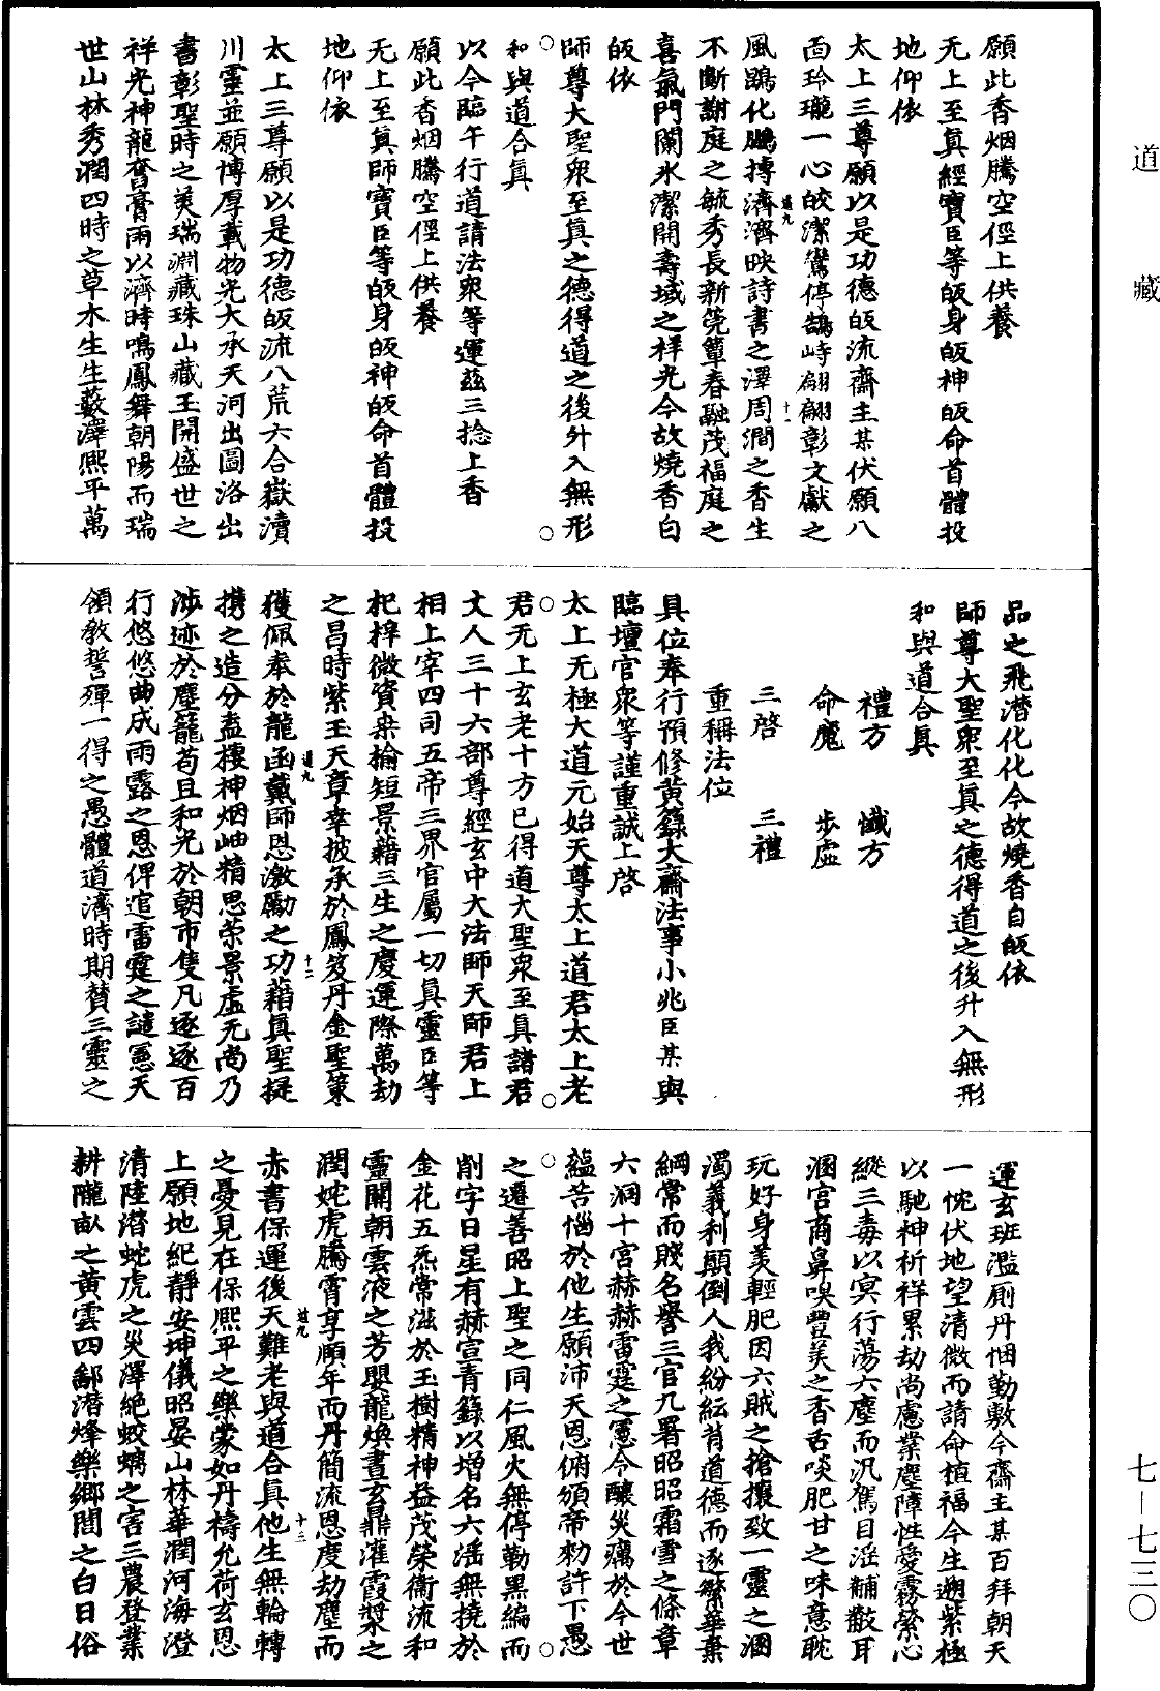 道藏
願此香烟騰空徑上供養
无上至眞經寶臣等皈身皈神皈命首體投
地仰依
太上三尊願以是功德皈流齋主某伏願八
面玲瓏一心皎潔鸞停鵠峙翩翩彰文獻之
風鵾化鵬摶濟濟映詩書之澤周澗之香生
不斷謝庭之毓秀長新筦簟春融茂福庭之
喜氣門闌氷潔開壽域之祥光今故燒香自
皈依
師尊大聖衆至眞之德得道之後升入無形
和與道合眞
以今臨午行道請法衆等運茲三捻上香
願此香烟騰空徑上供養
无上至眞師寶臣等皈身皈神皈命首體投
地仰依
太上三尊願以是功德皈流八荒六合嶽瀆
川靈並願博厚載物光大承天河出圖洛出
書彰聖時之美瑞淵藏珠山藏玉開盛世之
祥光神龍奮膏雨以濟時鳴鳳舞朝陽而瑞
世山林秀潤四時之草木生生藪澤熙平萬
道九
十一
品之飛潛化化今故燒香自皈依
師尊大聖衆至眞之德得道之後升入無形
和與道合眞
禮方 懺方
命魔 步虛
三啓 三禮
重稱法位
具位奉行預修黃籙大齋法事小兆臣某與
臨壇官衆等謹重誠上啓
太上无極大道元始天尊太上道君太上老
君无上玄老十方已得道大聖衆至眞諸君
丈人三十六部尊經玄中大法師天師君上
相上宰四司五帝三界官屬一切眞靈臣等
杞梓微資桑榆短景藉三生之慶運際萬劫
之昌時紫玉天章幸披承於鳳笈丹金聖策
獲佩奉於龍函戴師恩激勵之功藉眞聖提
携之造分盍棲神烟岫精思荣景虛无尚乃
涉迹於塵籠苟且和光於朝市隻凡逐逐百
行悠悠曲成雨露之恩俾逭雷霆之譴憲天
領教誓殫一得之愚體道濟時期賛三靈之
道九
十二
運玄班濫厠丹悃勤敷今齋主某百拜朝天
一忱伏地望清微而請命植福今生遡紫極
以馳神祈祥累劫尚慮業塵障性愛霧縈心
縱三毒以冥行蕩六塵而汎駕目滛黼黻耳
溷宮商鼻嗅豐美之香舌啖肥甘之味意耽
玩好身美輕肥因六賊之搶攘致一靈之溷
濁義利顚倒人我紛紜背道德而逐繁華棄
綱常而賤名譽三官九署昭昭霜雪之條章
六洞十宮赫赫雷霆之憲令釀災癘於今世
蘊苦惱於他生願沛天恩俯頒帝勑許下愚
之遷善昭上聖之同仁風火無停勒黑編而
削字日星有赫宣青籙以增名六滛無撓於
金花五炁常滋於玉樹精神益茂榮衞流和
靈開朝雲液之芳嬰龍煥晝玄鼎灌霞漿之
潤姹虎騰霄享順年而丹簡流恩度劫塵而
赤書保運後天難老與道合眞他生無輪轉
之憂見在保熙平之樂蒙如丹禱允荷玄恩
上願地紀靜安坤儀昭晏山林華潤河海澄
清陸潛蛇虎之災澤絶蛟螭之害三農登業
耕隴畝之黃雲四鄙潛烽樂鄉閭之白日俗
道九
十三
七—七三〇